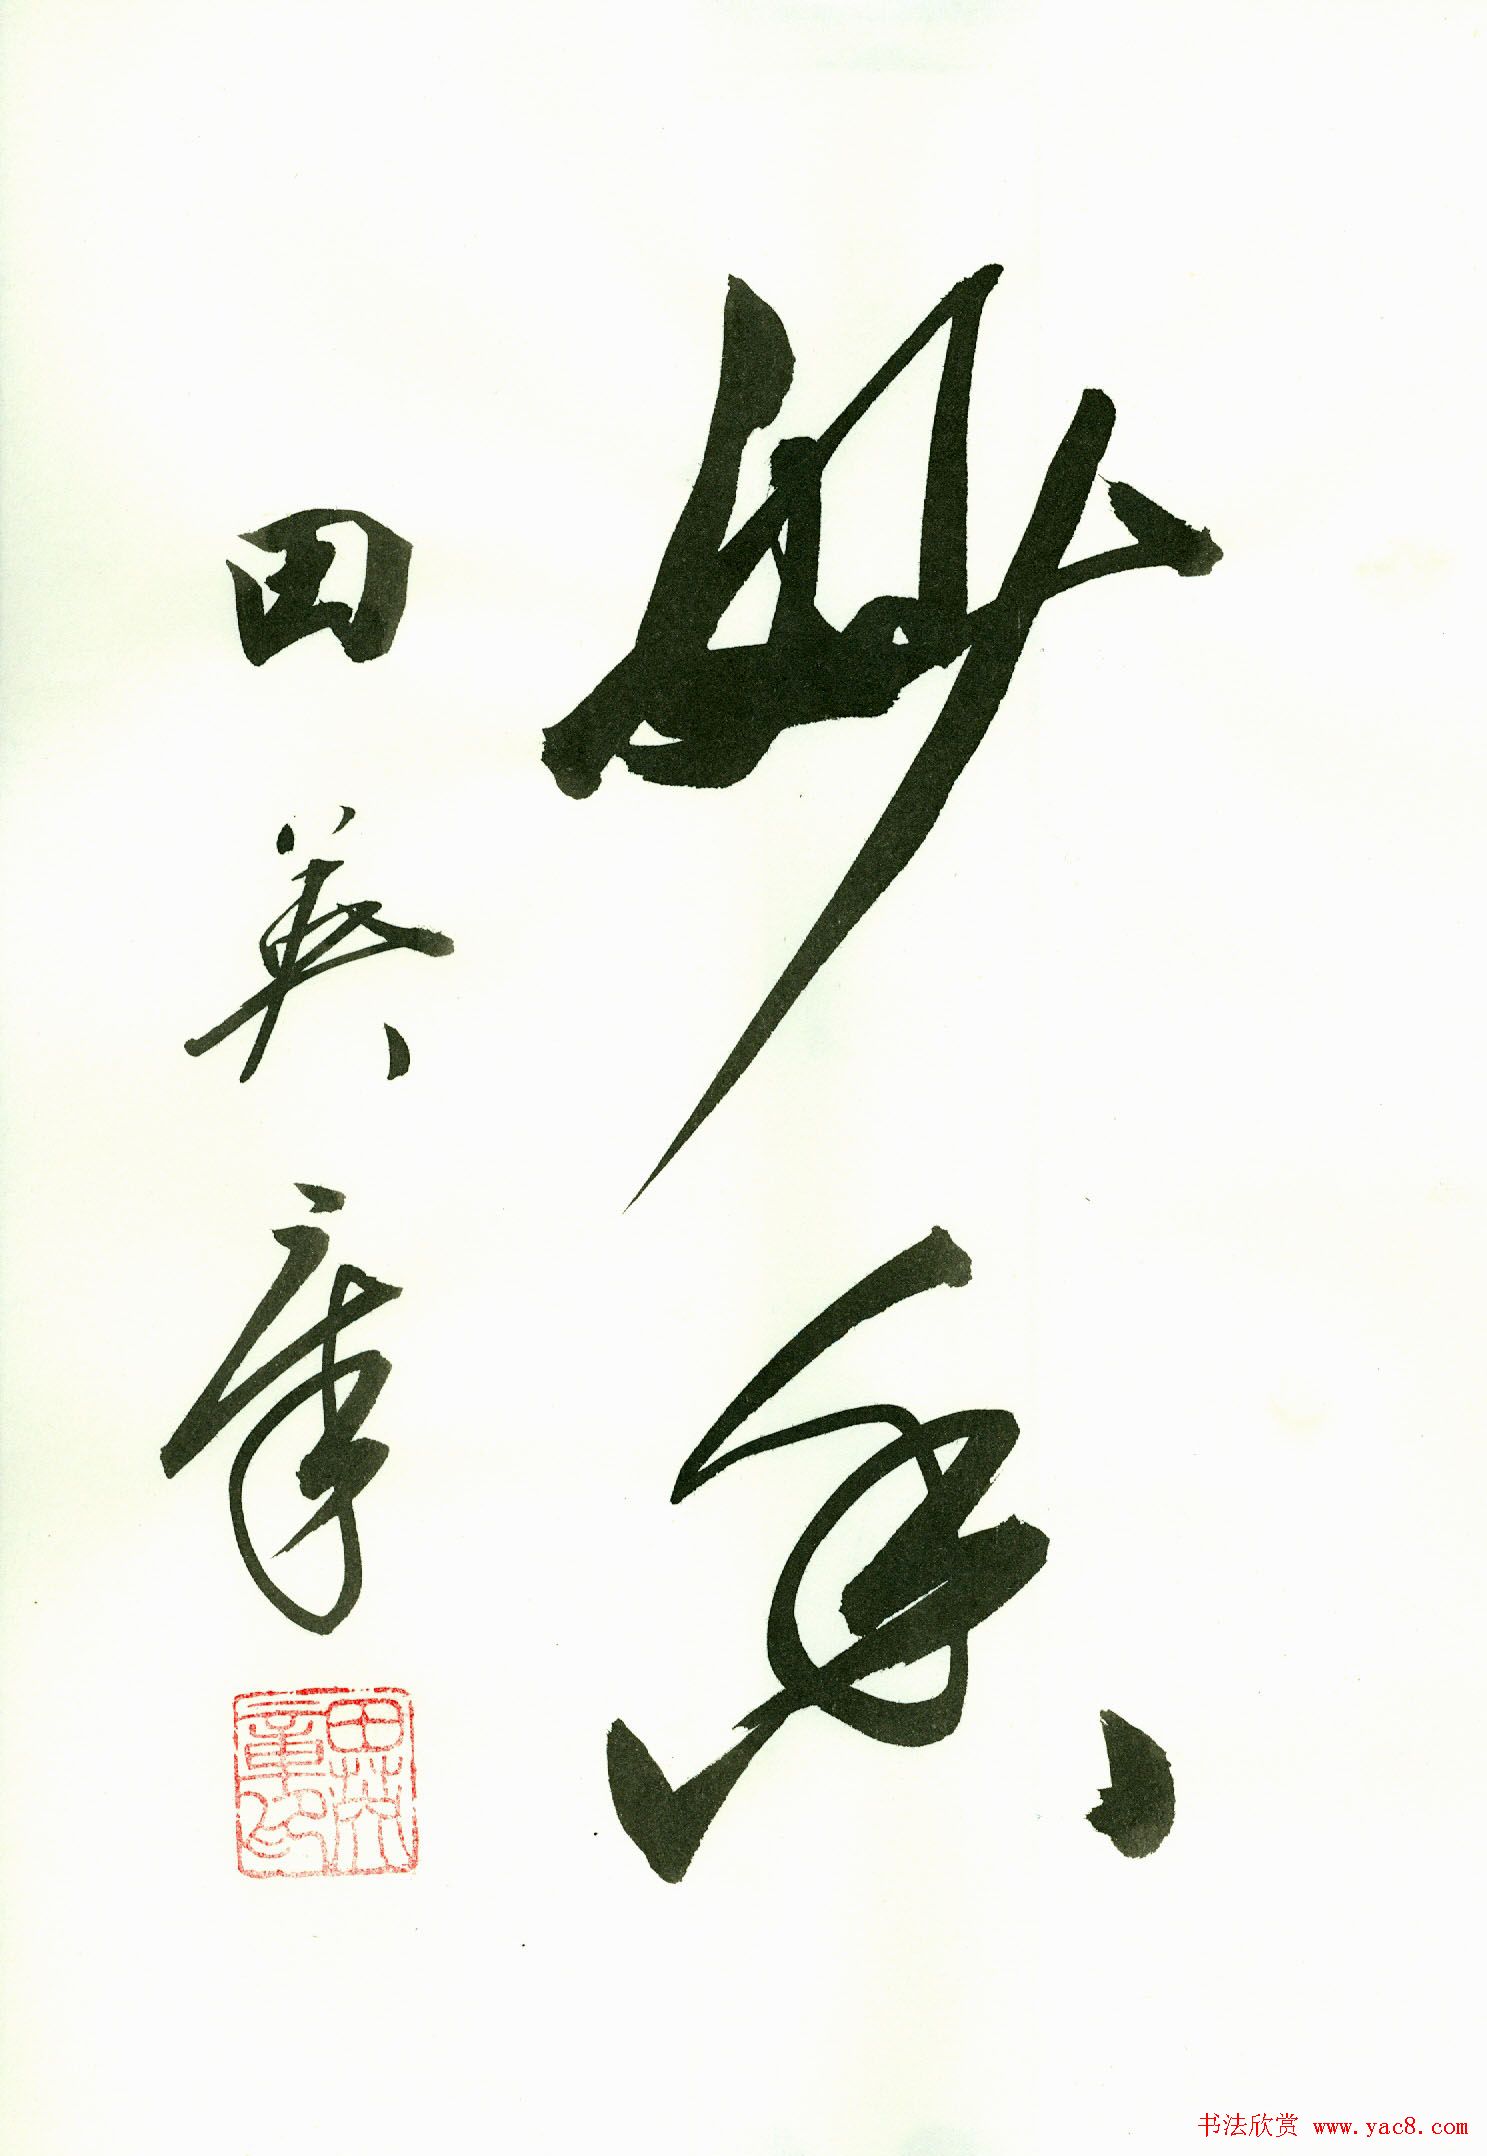 妙
田英章
田英章印
书法欣赏 www.yac8.com